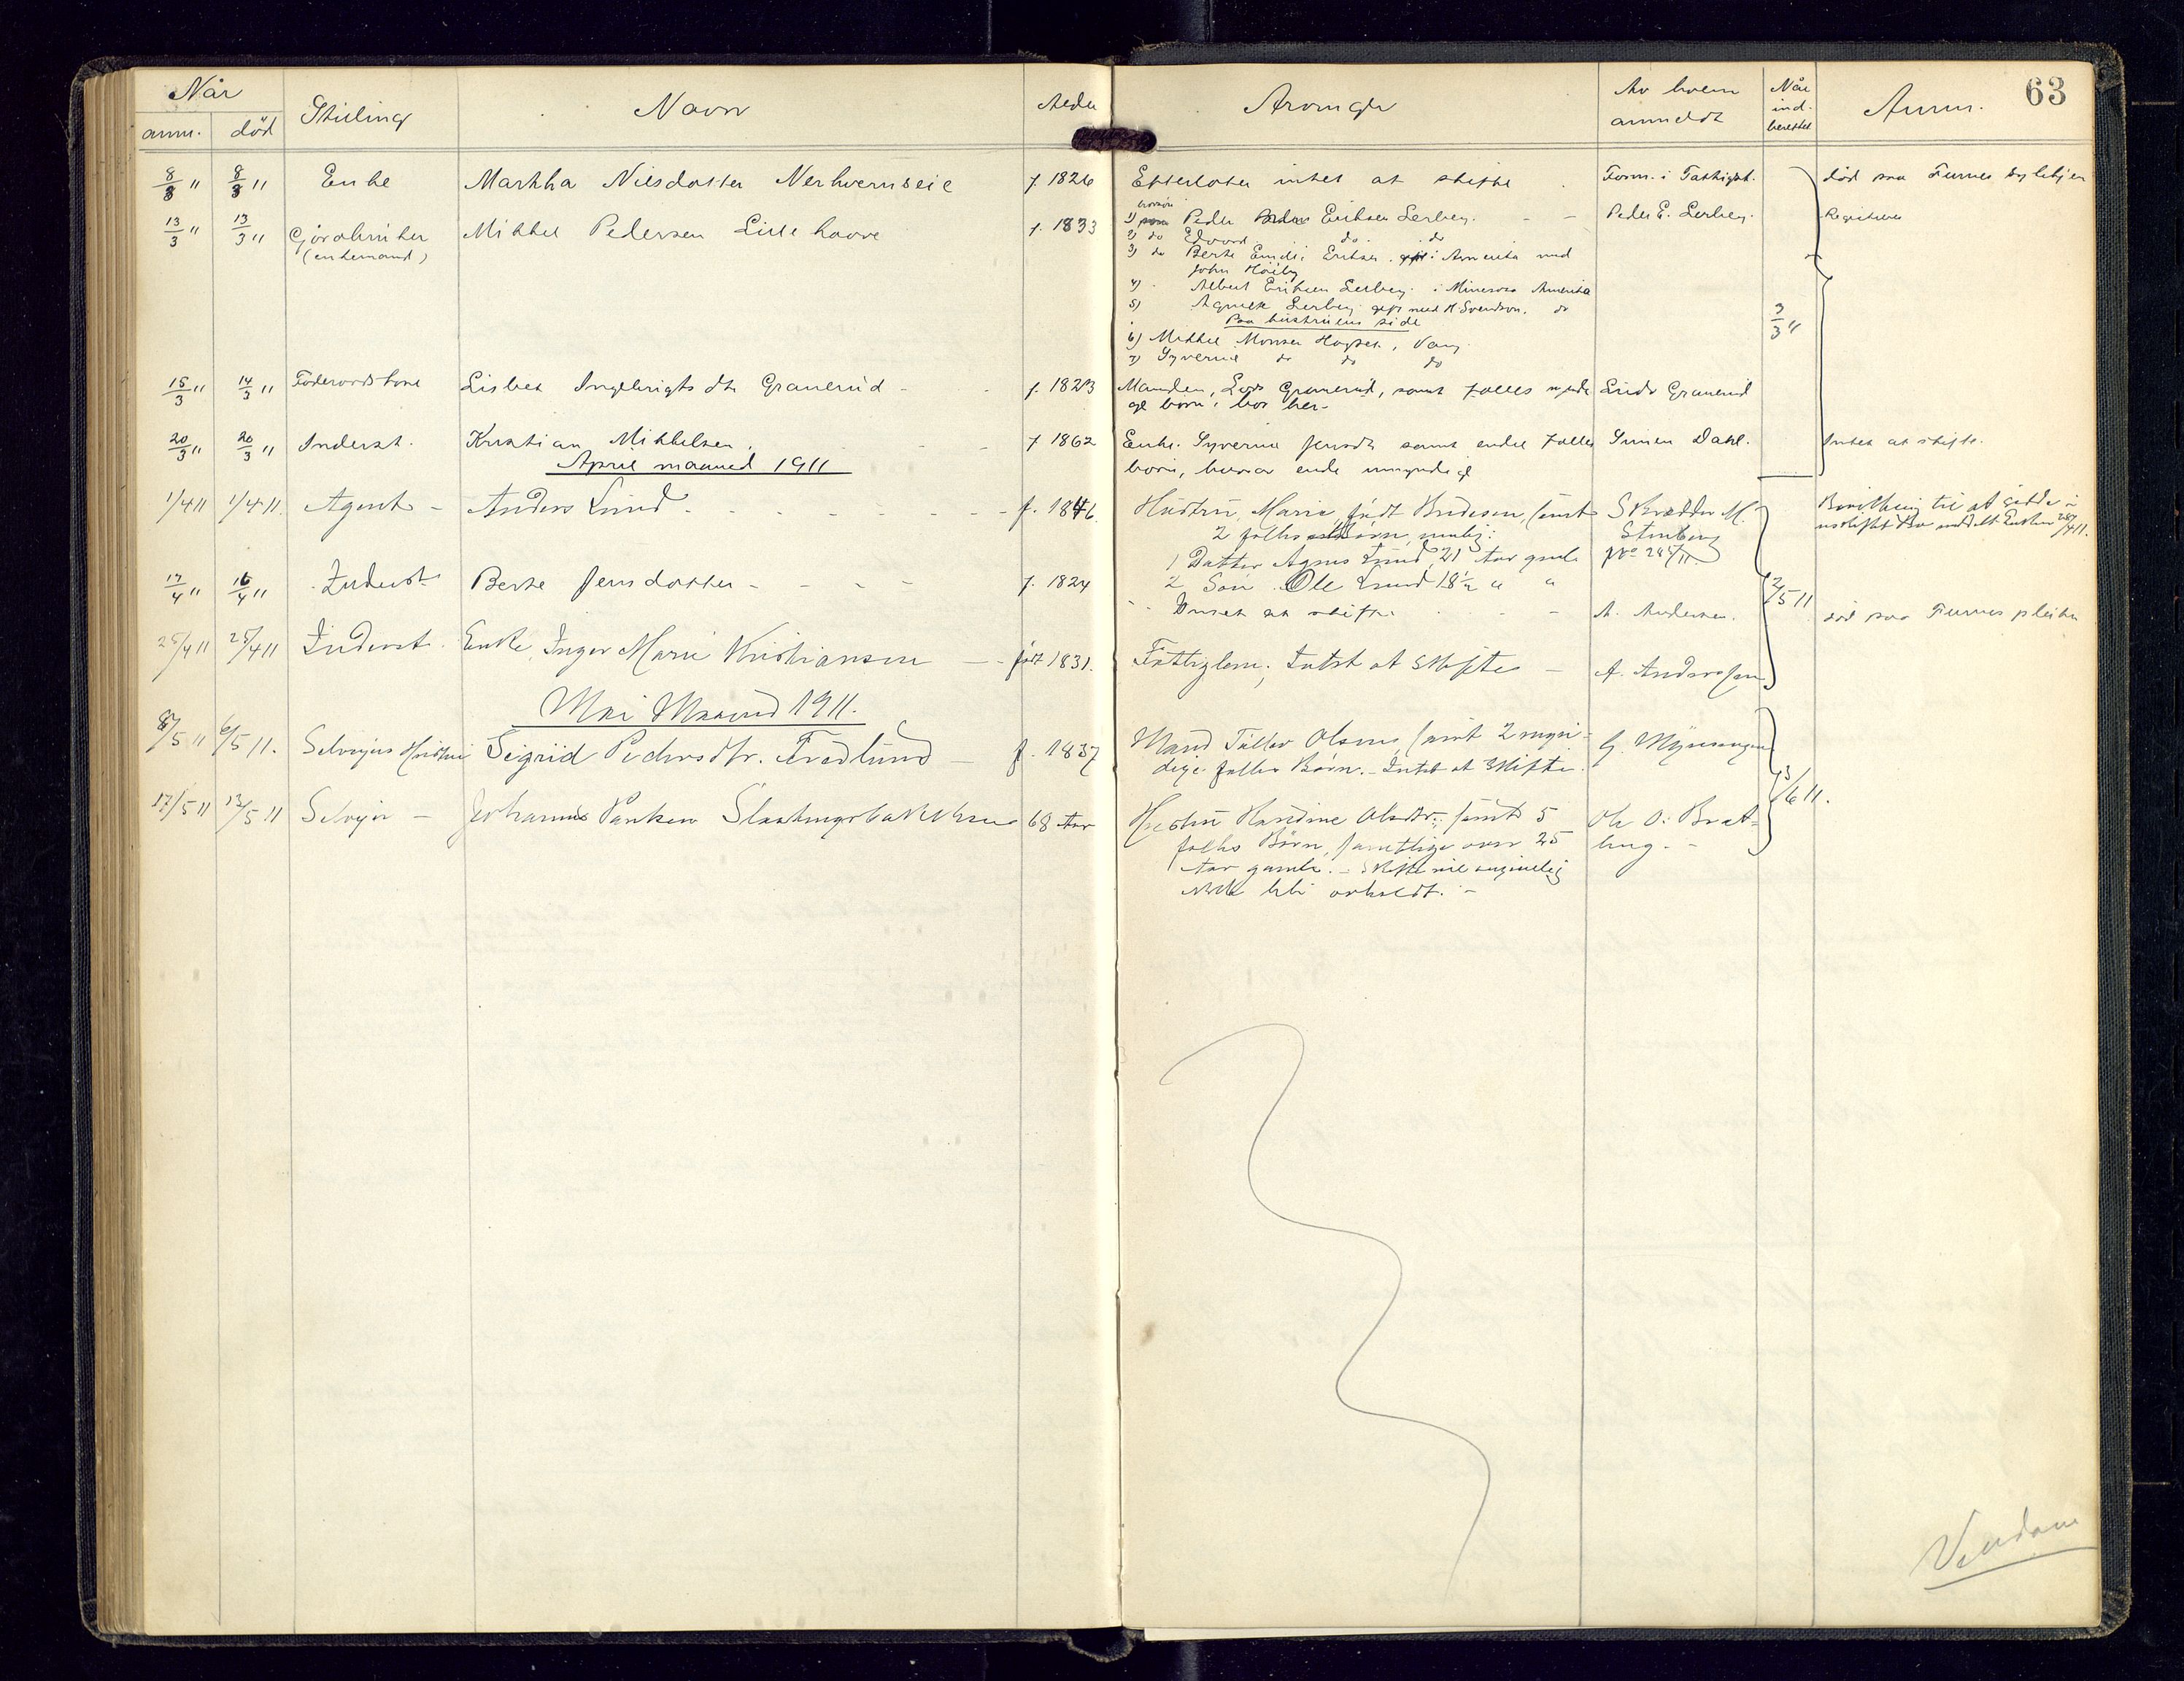 63
Når
anm. død Stilling Navn Alder Arvinger Av hvem anmeldt Når ind-berettet Anm.
8/3 " 8/3 " Enke Markha Nilsdatter Nerkvernseie f. 1826 Efterlater intet at skifte Form. i Fattigst. død paa Furnes sykehjem
13/3 " 13/3 " Gjørdknker Mikkel Pedersen Lillehaave f. 1833 1) Peder Eriksen Serbey. Peder E. Serbey. Registreres
(enkemand) 2) do Edvard do. do
3) do Berte Emilie Eriksen. gift i Amerika med
John Høiby
4) Albert Eriksen Serbey. i Minesota Amerika
5) Agnete Serbey gift med H Svendsen. do
Paa hustruens side 3/3 "
6) Mikkel Monsen Hagen, Vang
7) Syverine do do do
15/3 " 14/3 " Føderaadskone Lisbet Ingebrigts dtr Granerud f. 1823 Manden, Lars Granerud, samt fælles myndige Granerud
børn, bor her.
20/3 " 20/3 " Inderst. Kristian Mikkelsen. f. 1862 Enke. Syverine Jensdt samt endel fælles Simen Dahl. Intet at skifte.
April maaned 1911 børn, hvorav ende umyndige
1/4 11 1/4 11. Agent Anders Lund f. 1846. Hustru, Marie, født Knudsen, samt Skrædder M. Bevilling til at sidde i
2 fælles Børn, nemlig: Stenberg uskiftet Bo meddelt Enken 28/4 11.
1 Datter Agnes Lund, 21 Aar gml.
2 Søn Ole Lund 18½ " "
17/4 " 16/4 " Inderst Berte Jensdatter f. 1824 Intet at skifte A. Andersen. 2/5 11 død paa Furnes pleiehj.
25/4 11 25/4 11 Inderst. Enke, Inger Marie Kristiansen født 1831. Fattiglem; Intet at skifte A. Andersen
Mai Maaned 1911.
8/5 11 6/5 11. Selveiers Hustru Sigrid Pedersdtr. Fredlund f. 1837 Mand Tollev Olsen, samt 2 myn-
dige fælles Børn. Intet at skifte.
17/5 11 13/5 11 Selveier Johannes 68 Aar Hustru Karoline Olsdtr., samt 5 Ole O. Brat- 3/6 11.
fælles Børn, samtlige over 25 berg.
Aar gamle. Skifte vil rimelig
ikke bli avholdt.